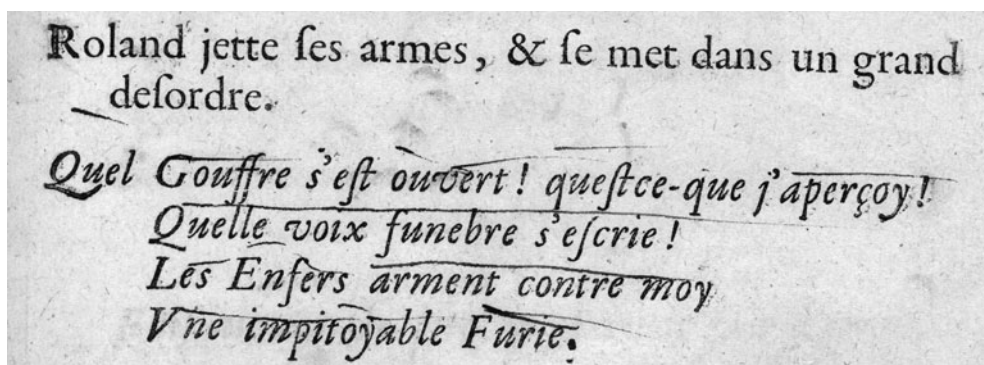 Roland jette ſes armes, & ſe met dans un grand
deſordre.
Quel Gouffre s'eſt ouvert! queſtce-que j'aperçoy!
Quelle voix funebre s'eſcrie!
Les Enfers arment contre moy
Vne impitoyable Furie.